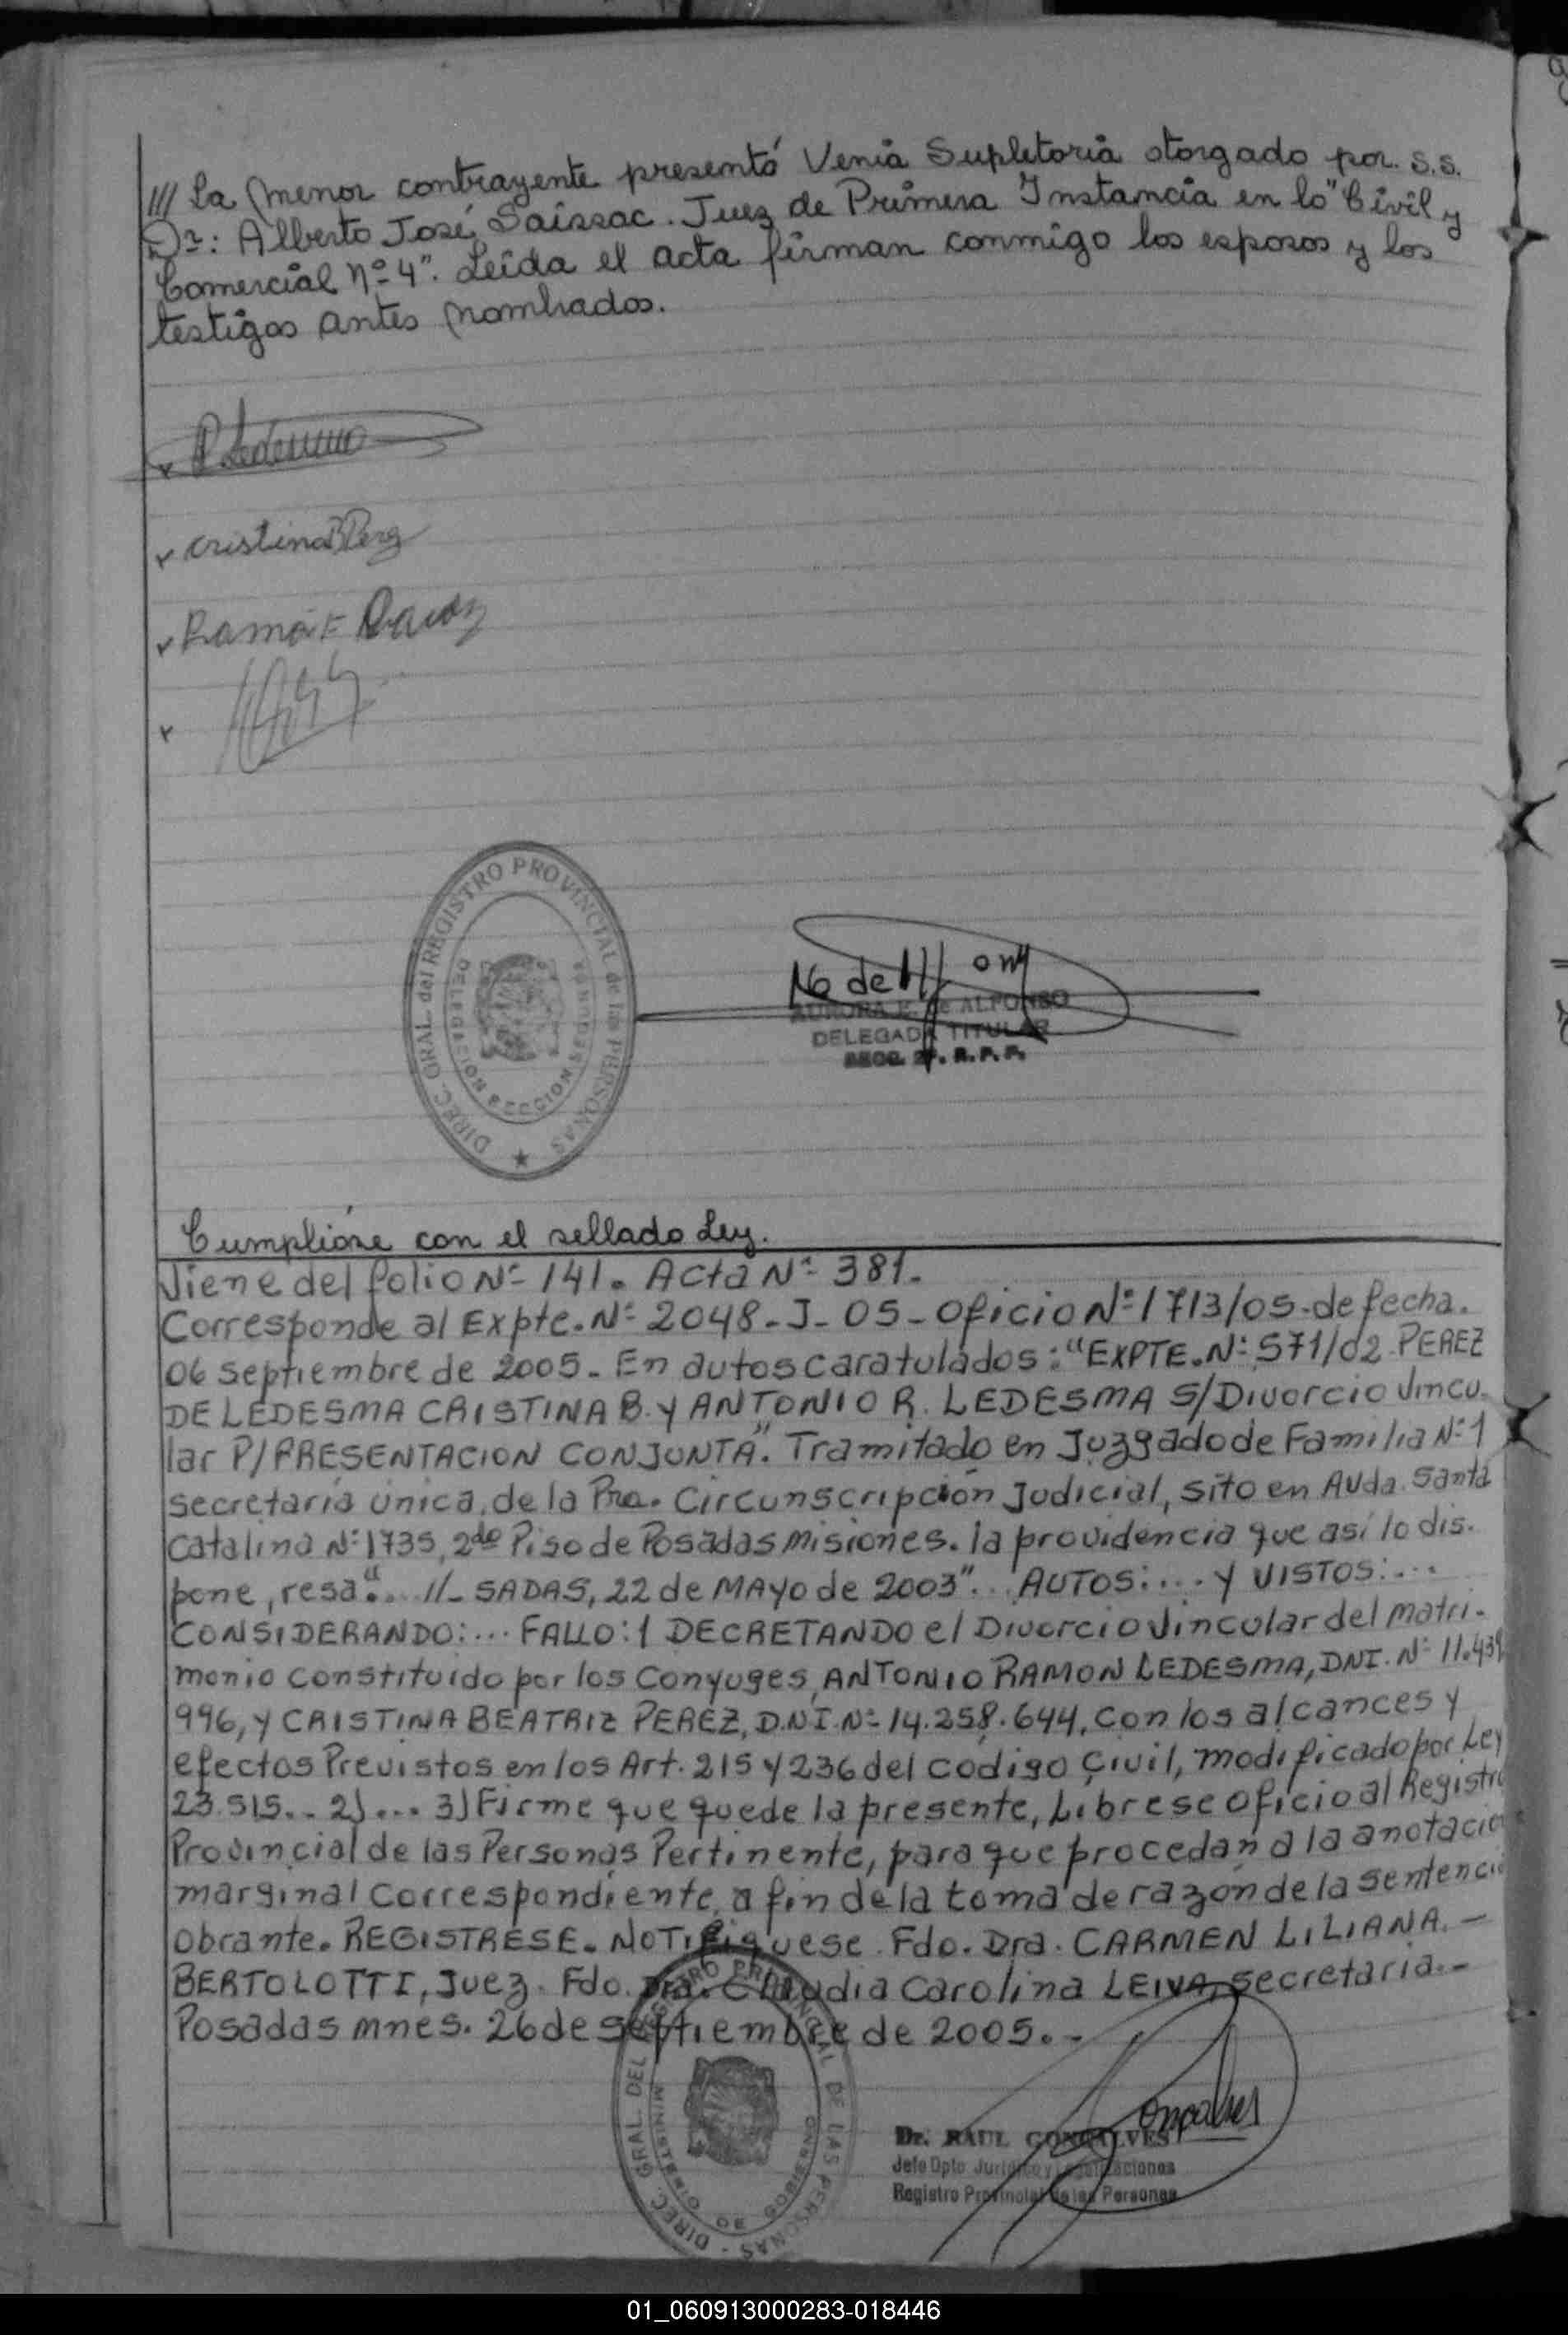 /// La menor contrayente presentó Venia Supletoria otorgado por. S.S.
Dr: Alberto José Saissac. Juez de Primera Instancia en lo "Civil y
Comercial Nº 4". Leída el acta firman conmigo los esposos y los
testigos antes nombrados.
Ledesma
Cristina B Perez
Ramón
DIREC. GRAL. del REGISTRO PROVINCIAL de las PERSONAS
DELEGACION SECCION SEGUNDA
AURORA E. de ALFONSO
DELEGADA TITULAR
SECC. 2ª. R. P. P.
Cumplióse con el sellado Ley.
Viene del folio Nº 141. Acta Nº 381.
Corresponde al Expte. Nº 2048-J-05-Oficio Nº 1713/05-de fecha.
06 septiembre de 2005- En autos caratulados: "EXPTE. Nº 571/02 PEREZ
DE LEDESMA CRISTINA B. Y ANTONIO R. LEDESMA S/Divorcio Vincu-
lar P/PRESENTACION CONJUNTA". Tramitado en Juzgado de Familia Nº 1
secretaría única, de la Pra. Circunscripción Judicial, sito en Avda. Santa
Catalina Nº 1735, 2do Piso de Posadas Misiones. la providencia que así lo dis-
pone, resa "... //- SADAS, 22 de MAYO de 2003"... AUTOS:.... Y VISTOS:....
CONSIDERANDO:... FALLO: 1 DECRETANDO el Divorcio Vincular del matri-
monio constituido por los Conyuges, ANTONIO RAMON LEDESMA, DNI. Nº 11.439
996, Y CRISTINA BEATRIZ PEREZ, D.N.I. Nº 14.258.644, con los alcances y
efectos Previstos en los Art. 215 y 236 del codigo Civil, modificado por Ley
23.515.. 2)... 3) Firme que quede la presente, Librese oficio al Registro
Provincial de las Personas Pertinente, para que procedan a la anotacio
marginal correspondiente, a fin de la toma de razón de la sentencia
Obrante. REGISTRESE. NOTIFiquese. Fdo. Dra. CARMEN LILIANA.-
BERTOLOTTI, Juez. Fdo. Dra. Claudia Carolina LEIVA, secretaria.-
Posadas mnes. 26 de septiembre de 2005.-
DIREC. GRAL. DEL REGISTRO PROVINCIAL DE LAS PERSONAS
MINISTERIO DE GOBIERNO
Goncalves
Dr. RAUL GONCALVES
Jefe Dpto Jurídico y Legalizaciones
Registro Provincial de las Personas
01_060913000283-018446